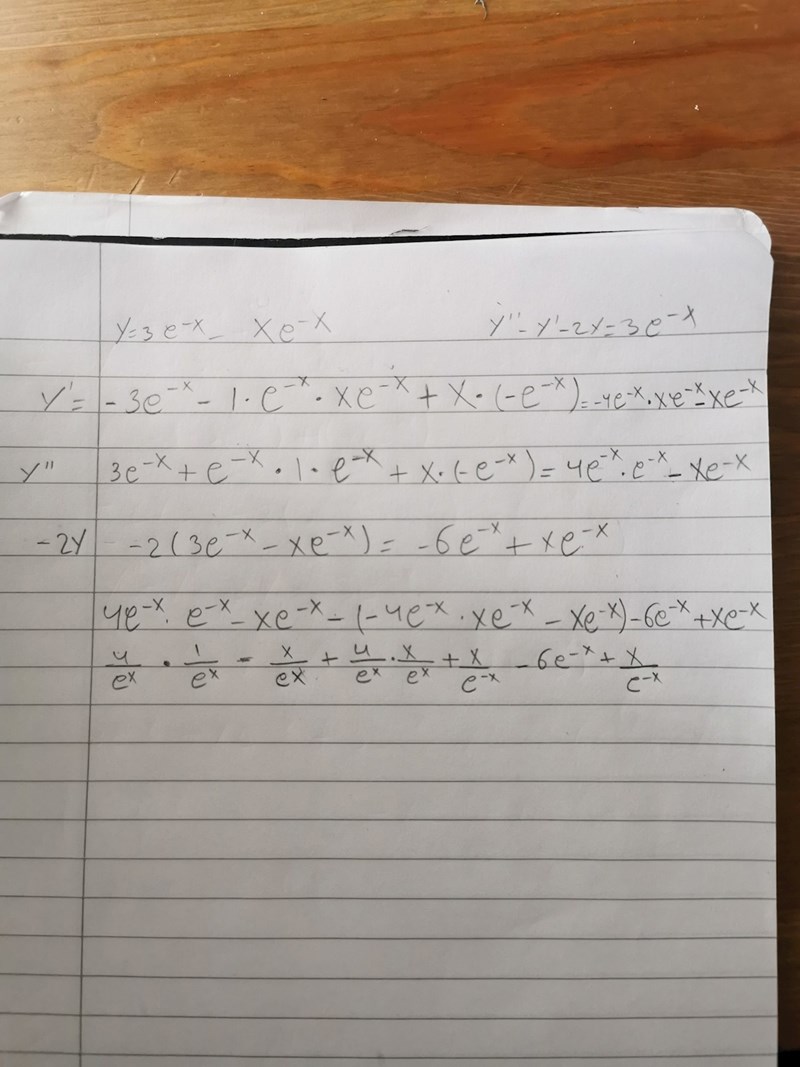 y=3e^-x - xe^-x y''-y'-2y=3e^-x
y'= -3e^-x - 1·e^-x · xe^-x + x·(-e^-x)=-4e^-x · xe^-x - xe^-x
y'' 3e^-x + e^-x · 1 · e^-x + x·(-e^-x)= 4e^-x · e^-x - xe^-x
-2y -2(3e^-x - xe^-x)= -6e^-x + xe^-x
4e^-x · e^-x - xe^-x - (-4e^-x · xe^-x - xe^-x) - 6e^-x + xe^-x
4/e^x · 1/e^x - x/e^x + 4/e^x · x/e^x + x/e^-x - 6e^-x + x/e^-x